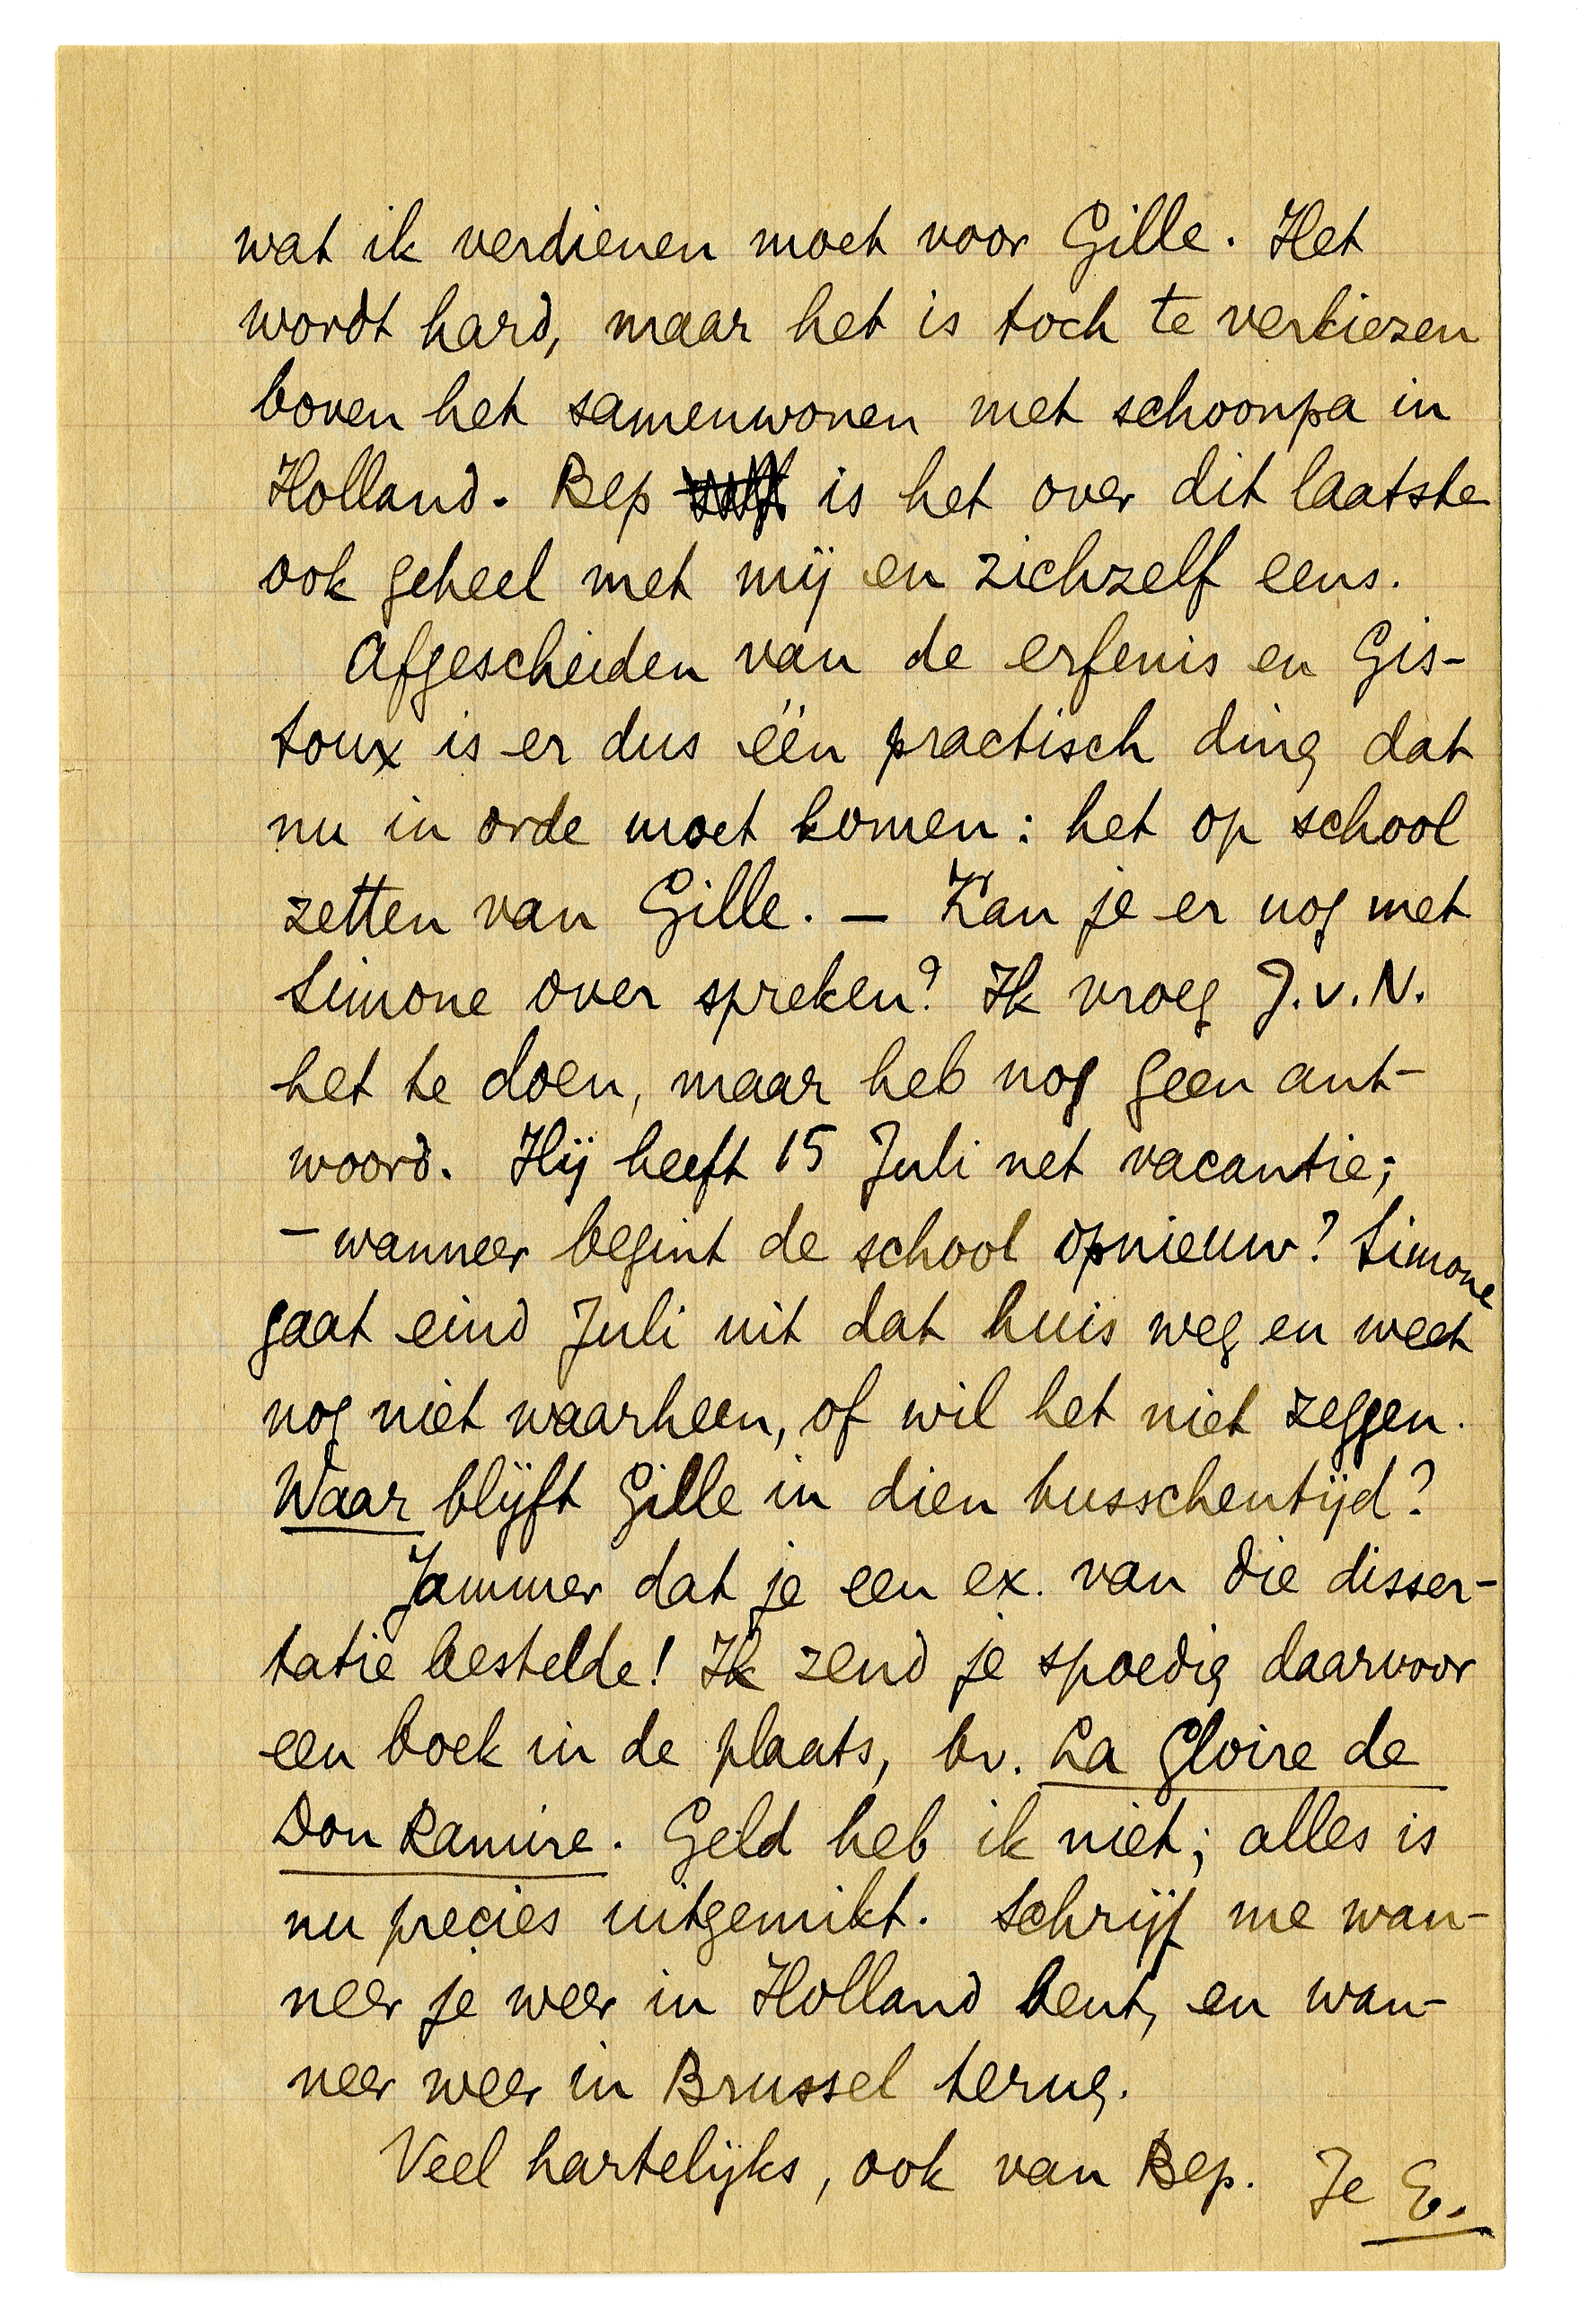 wat ik verdienen moet voor Gille. Het
wordt hard, maar het is toch te verkiezen
boven het samenwonen met schoonpa in
Holland. Bep is het over dit laatste
ook geheel met mij en zichzelf eens.
Afgescheiden van de erfenis en Gis-
toux is er dus één practisch ding dat
nu in orde moet komen: het op school
zetten van Gille. — Kan je er nog met
Simone over spreken? Ik vroeg J.v.N.
het te doen, maar heb nog geen ant-
woord. Hij heeft 15 Juli net vacantie;
– wanneer begint de school opnieuw? Simone
gaat eind Juli uit dat huis weg en weet
nog niet waarheen, of wil het niet zeggen.
Waar blijft Gille in dien tusschentijd?
Jammer dat je een ex. van die disser-
tatie bestelde! Ik zend je spoedig daarvoor
een boek in de plaats, bv. La Gloire de
Don Ramire. Geld heb ik niet; alles is
nu precies uitgemikt. Schrijf me wan-
neer je weer in Holland bent, en wan-
neer weer in Brussel terug.
Veel hartelijks, ook van Bep. Je E.